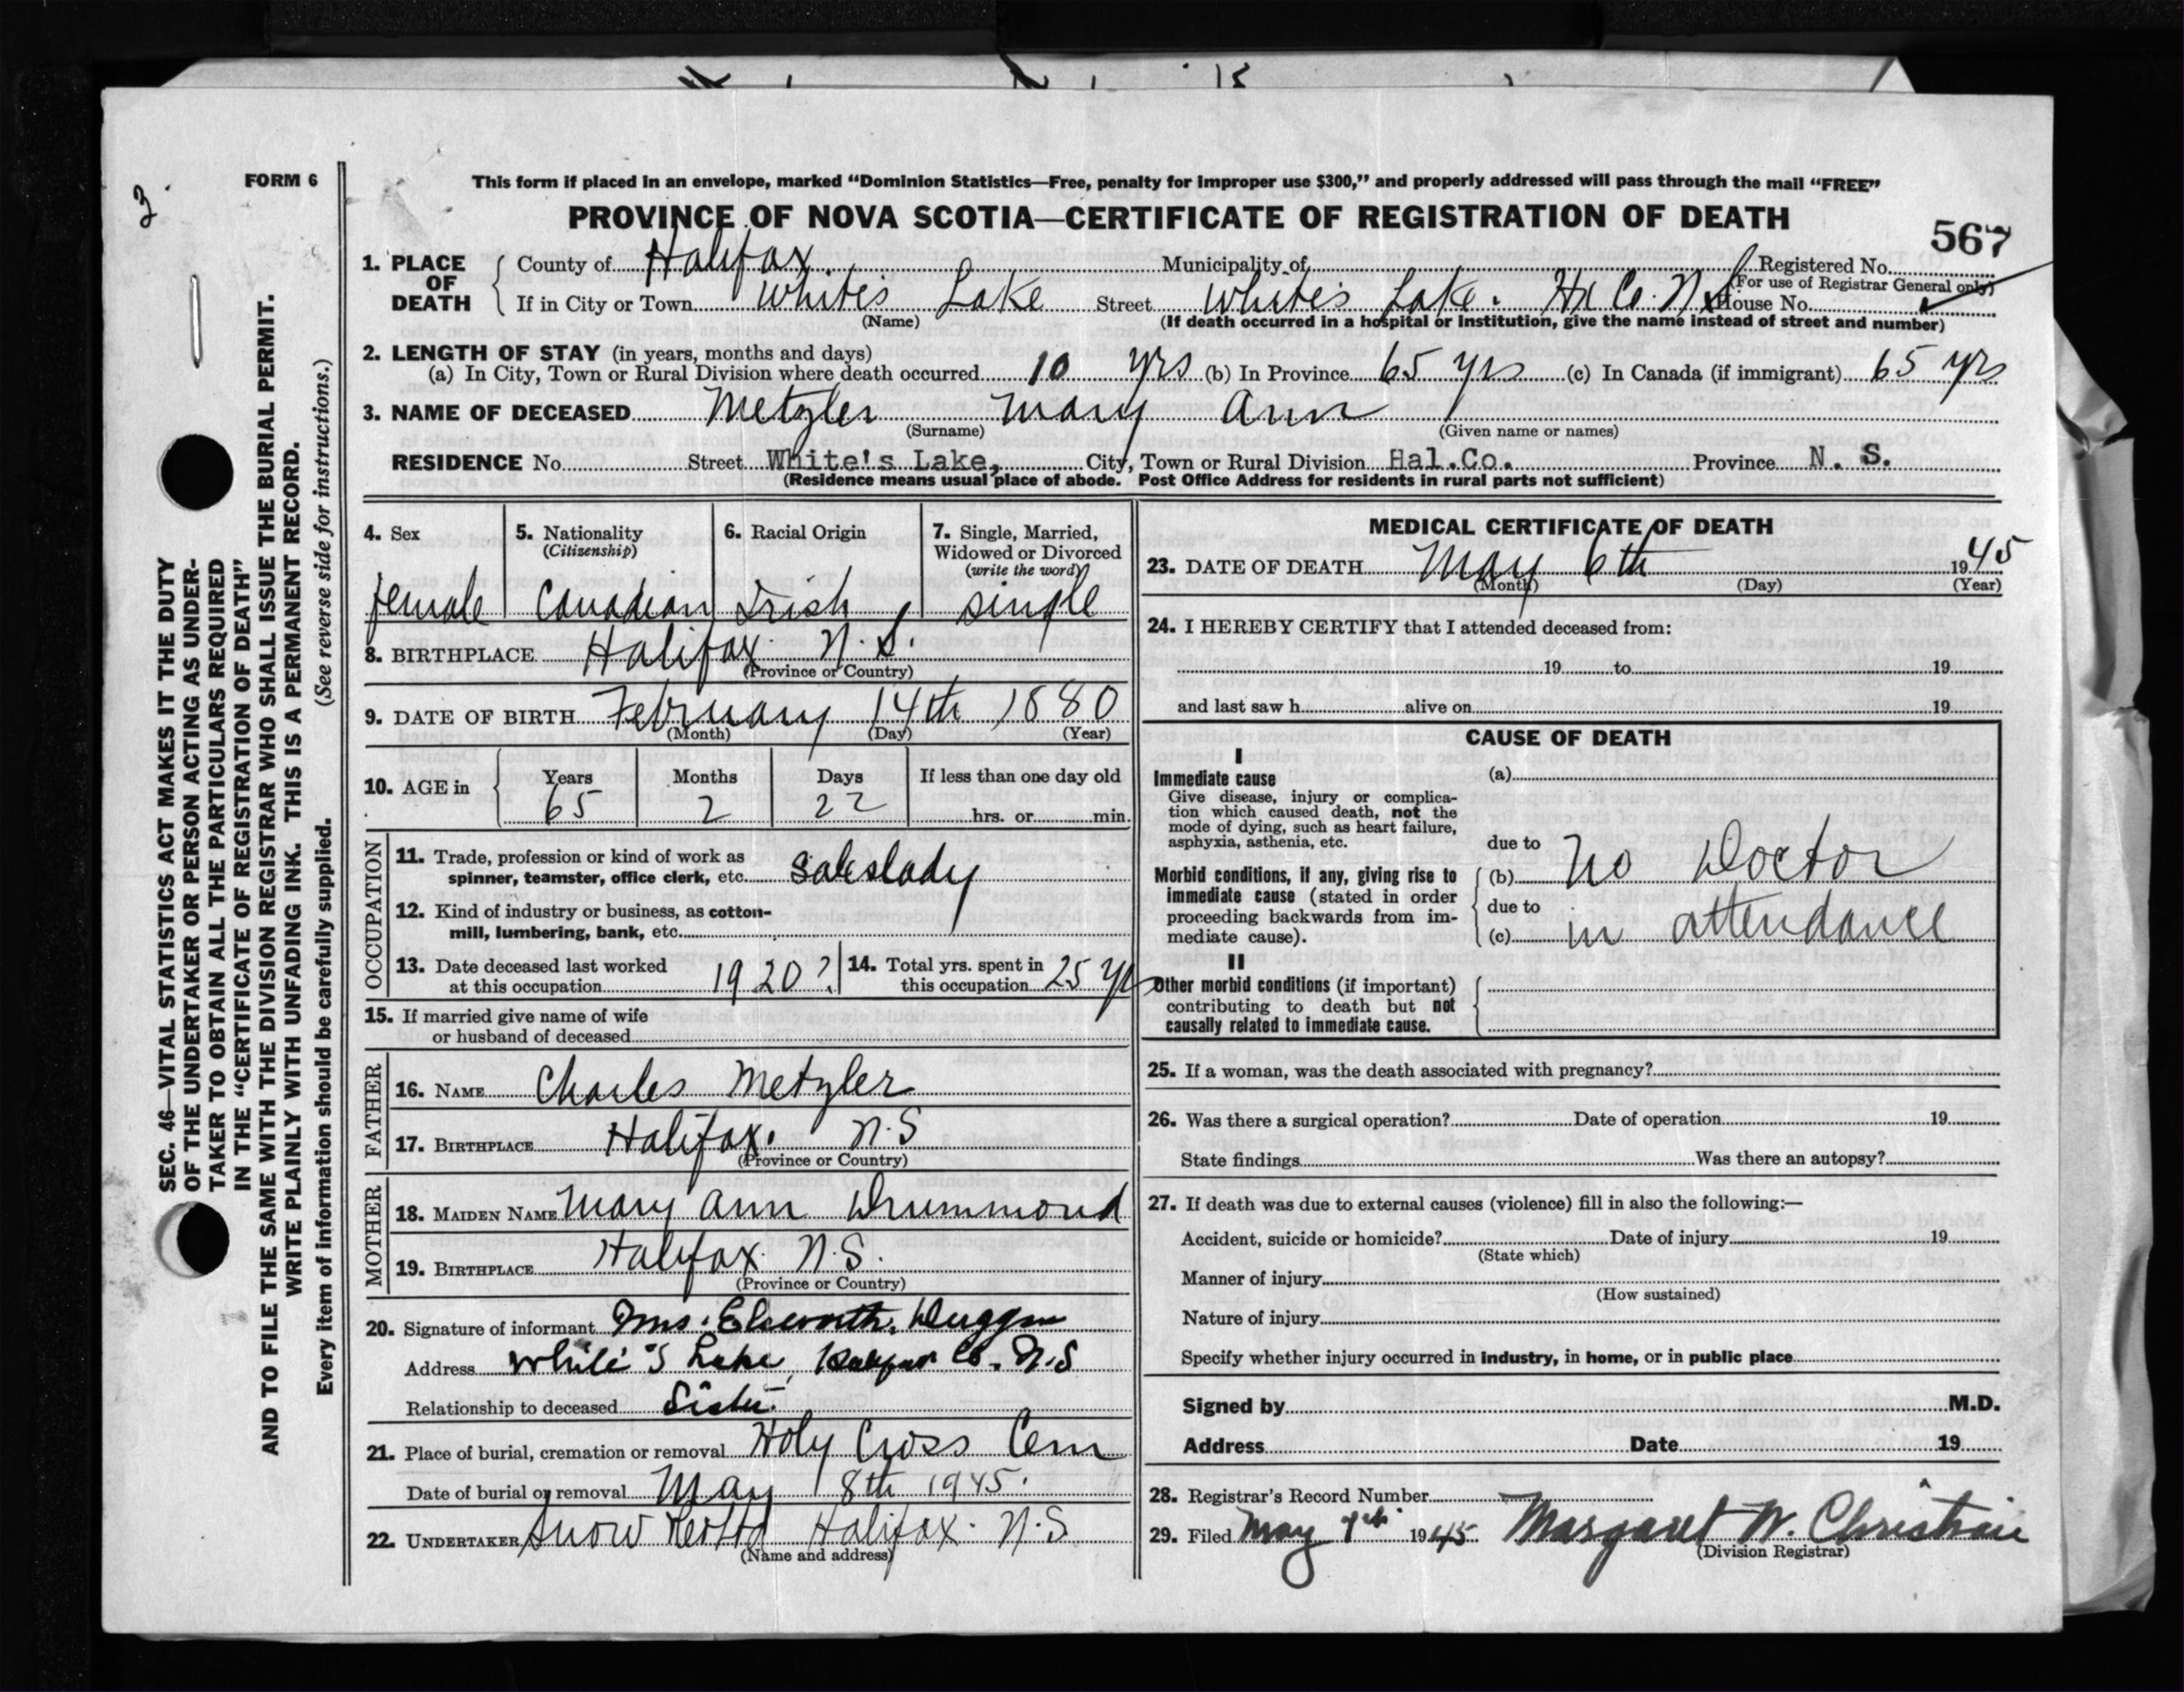 2.
FORM 6
This form if placed in an envelope, marked “Dominion Statistics—Free, penalty for improper use $300,” and properly addressed will pass through the mail “FREE”
PROVINCE OF NOVA SCOTIA—CERTIFICATE OF REGISTRATION OF DEATH
567
1. PLACE OF DEATH
County of Halifax. Municipality of Registered No.
(For use of Registrar General only)
If in City or Town White's Lake Street White's Lake. Hx Co. N.S House No.
(Name) (If death occurred in a hospital or institution, give the name instead of street and number)
2. LENGTH OF STAY (in years, months and days)
(a) In City, Town or Rural Division where death occurred 10 yrs (b) In Province 65 yrs (c) In Canada (if immigrant) 65 yrs
3. NAME OF DECEASED Metzler Mary Ann
(Surname) (Given name or names)
RESIDENCE No. Street White's Lake, City, Town or Rural Division Hal.Co. Province N. S.
(Residence means usual place of abode. Post Office Address for residents in rural parts not sufficient)
4. Sex
female
5. Nationality
(Citizenship)
Canadian
6. Racial Origin
Irish
7. Single, Married,
Widowed or Divorced
(write the word)
single
8. BIRTHPLACE Halifax N.S.
(Province or Country)
9. DATE OF BIRTH February 14th 1880
(Month) (Day) (Year)
10. AGE in
Years Months Days If less than one day old
65 2 22 hrs. or min.
OCCUPATION
11. Trade, profession or kind of work as
spinner, teamster, office clerk, etc. saleslady
12. Kind of industry or business, as cotton-
mill, lumbering, bank, etc.
13. Date deceased last worked
at this occupation 1920?
14. Total yrs. spent in
this occupation 25 yrs
15. If married give name of wife
or husband of deceased
FATHER
16. NAME Charles Metzler
17. BIRTHPLACE Halifax. N.S
(Province or Country)
MOTHER
18. MAIDEN NAME Mary Ann Drummond
19. BIRTHPLACE Halifax. N.S.
(Province or Country)
20. Signature of informant Mrs. Elsworth Duggan
Address White's Lake, Halifax Co. N.S
Relationship to deceased Sister.
21. Place of burial, cremation or removal Holy Cross Cem
Date of burial or removal May 8th 1945.
22. UNDERTAKER Snow Halifax. N.S
(Name and address)
MEDICAL CERTIFICATE OF DEATH
23. DATE OF DEATH May 6th 1945
(Month) (Day) (Year)
24. I HEREBY CERTIFY that I attended deceased from:
19 to 19
and last saw h alive on 19
CAUSE OF DEATH
I
Immediate cause (a)
Give disease, injury or complica-
tion which caused death, not the
mode of dying, such as heart failure,
asphyxia, asthenia, etc.
due to
Morbid conditions, if any, giving rise to
immediate cause (stated in order
proceeding backwards from im-
mediate cause).
(b) No Doctor
due to
(c) in attendance
II
Other morbid conditions (if important)
contributing to death but not
causally related to immediate cause.
25. If a woman, was the death associated with pregnancy?
26. Was there a surgical operation? Date of operation 19
State findings Was there an autopsy?
27. If death was due to external causes (violence) fill in also the following:—
Accident, suicide or homicide? Date of injury 19
(State which)
Manner of injury
(How sustained)
Nature of injury
Specify whether injury occurred in industry, in home, or in public place
Signed by M.D.
Address Date 19
28. Registrar's Record Number
29. Filed May 7th 1945 Margaret W. Christian
(Division Registrar)
SEC. 46—VITAL STATISTICS ACT MAKES IT THE DUTY
OF THE UNDERTAKER OR PERSON ACTING AS UNDER-
TAKER TO OBTAIN ALL THE PARTICULARS REQUIRED
IN THE “CERTIFICATE OF REGISTRATION OF DEATH”
AND TO FILE THE SAME WITH THE DIVISION REGISTRAR WHO SHALL ISSUE THE BURIAL PERMIT.
WRITE PLAINLY WITH UNFADING INK. THIS IS A PERMANENT RECORD.
Every item of information should be carefully supplied. (See reverse side for instructions.)